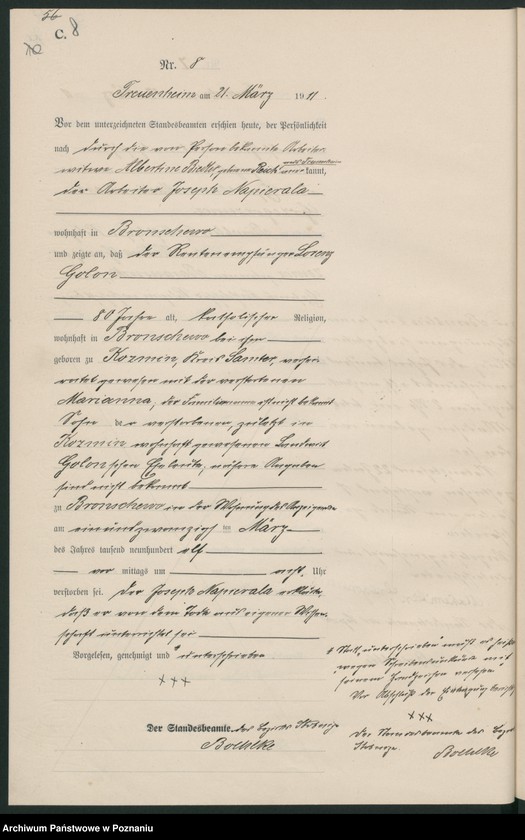 56
C. 8
Nr. 8
am 21. März 1911.
Vor dem unterzeichneten Standesbeamten erschien heute, der Persönlichkeit
nach durch die von Person bekannte Arbeiter-
witwe Albertine geborene kannt,
der Arbeiter Joseph Napierala
wohnhaft in Bronschewo
und zeigte an, daß der Rentenempfänger Lorenz
Golon
80 Jahre alt, katholischer Religion,
wohnhaft in Bronschewo bei ihm
geboren zu Kozmin, Kreis Samter, verhei-
ratet gewesen mit der verstorbenen
Marianna, der Familienname ist nicht bekannt
Sohn der verstorbenen, zuletzt in
Kozmin wohnhaft gewesenen Landwirt
Golon'schen Eheleute, nähere Angaben
sind nicht bekannt
zu Bronschewo in der Wohnung des Anzeigenden
am einundzwanzigsten März
des Jahres tausend neunhundert elf
vor mittags um acht Uhr
verstorben sei. Der Joseph Napierala erklärte,
daß er von dem Tode aus eigener Wissen-
schaft unterrichtet sei
Vorgelesen, genehmigt und unterschrieben
+++
Der Standesbeamte des Bezirks
Boehlke
Statt „unterschrieben" muß es heißen
wegen Schreibensunkunde mit
seinem Handzeichen versehen
+++
Der Standesbeamte des Bezirks
Boehlke
Archiwum Państwowe w Poznaniu